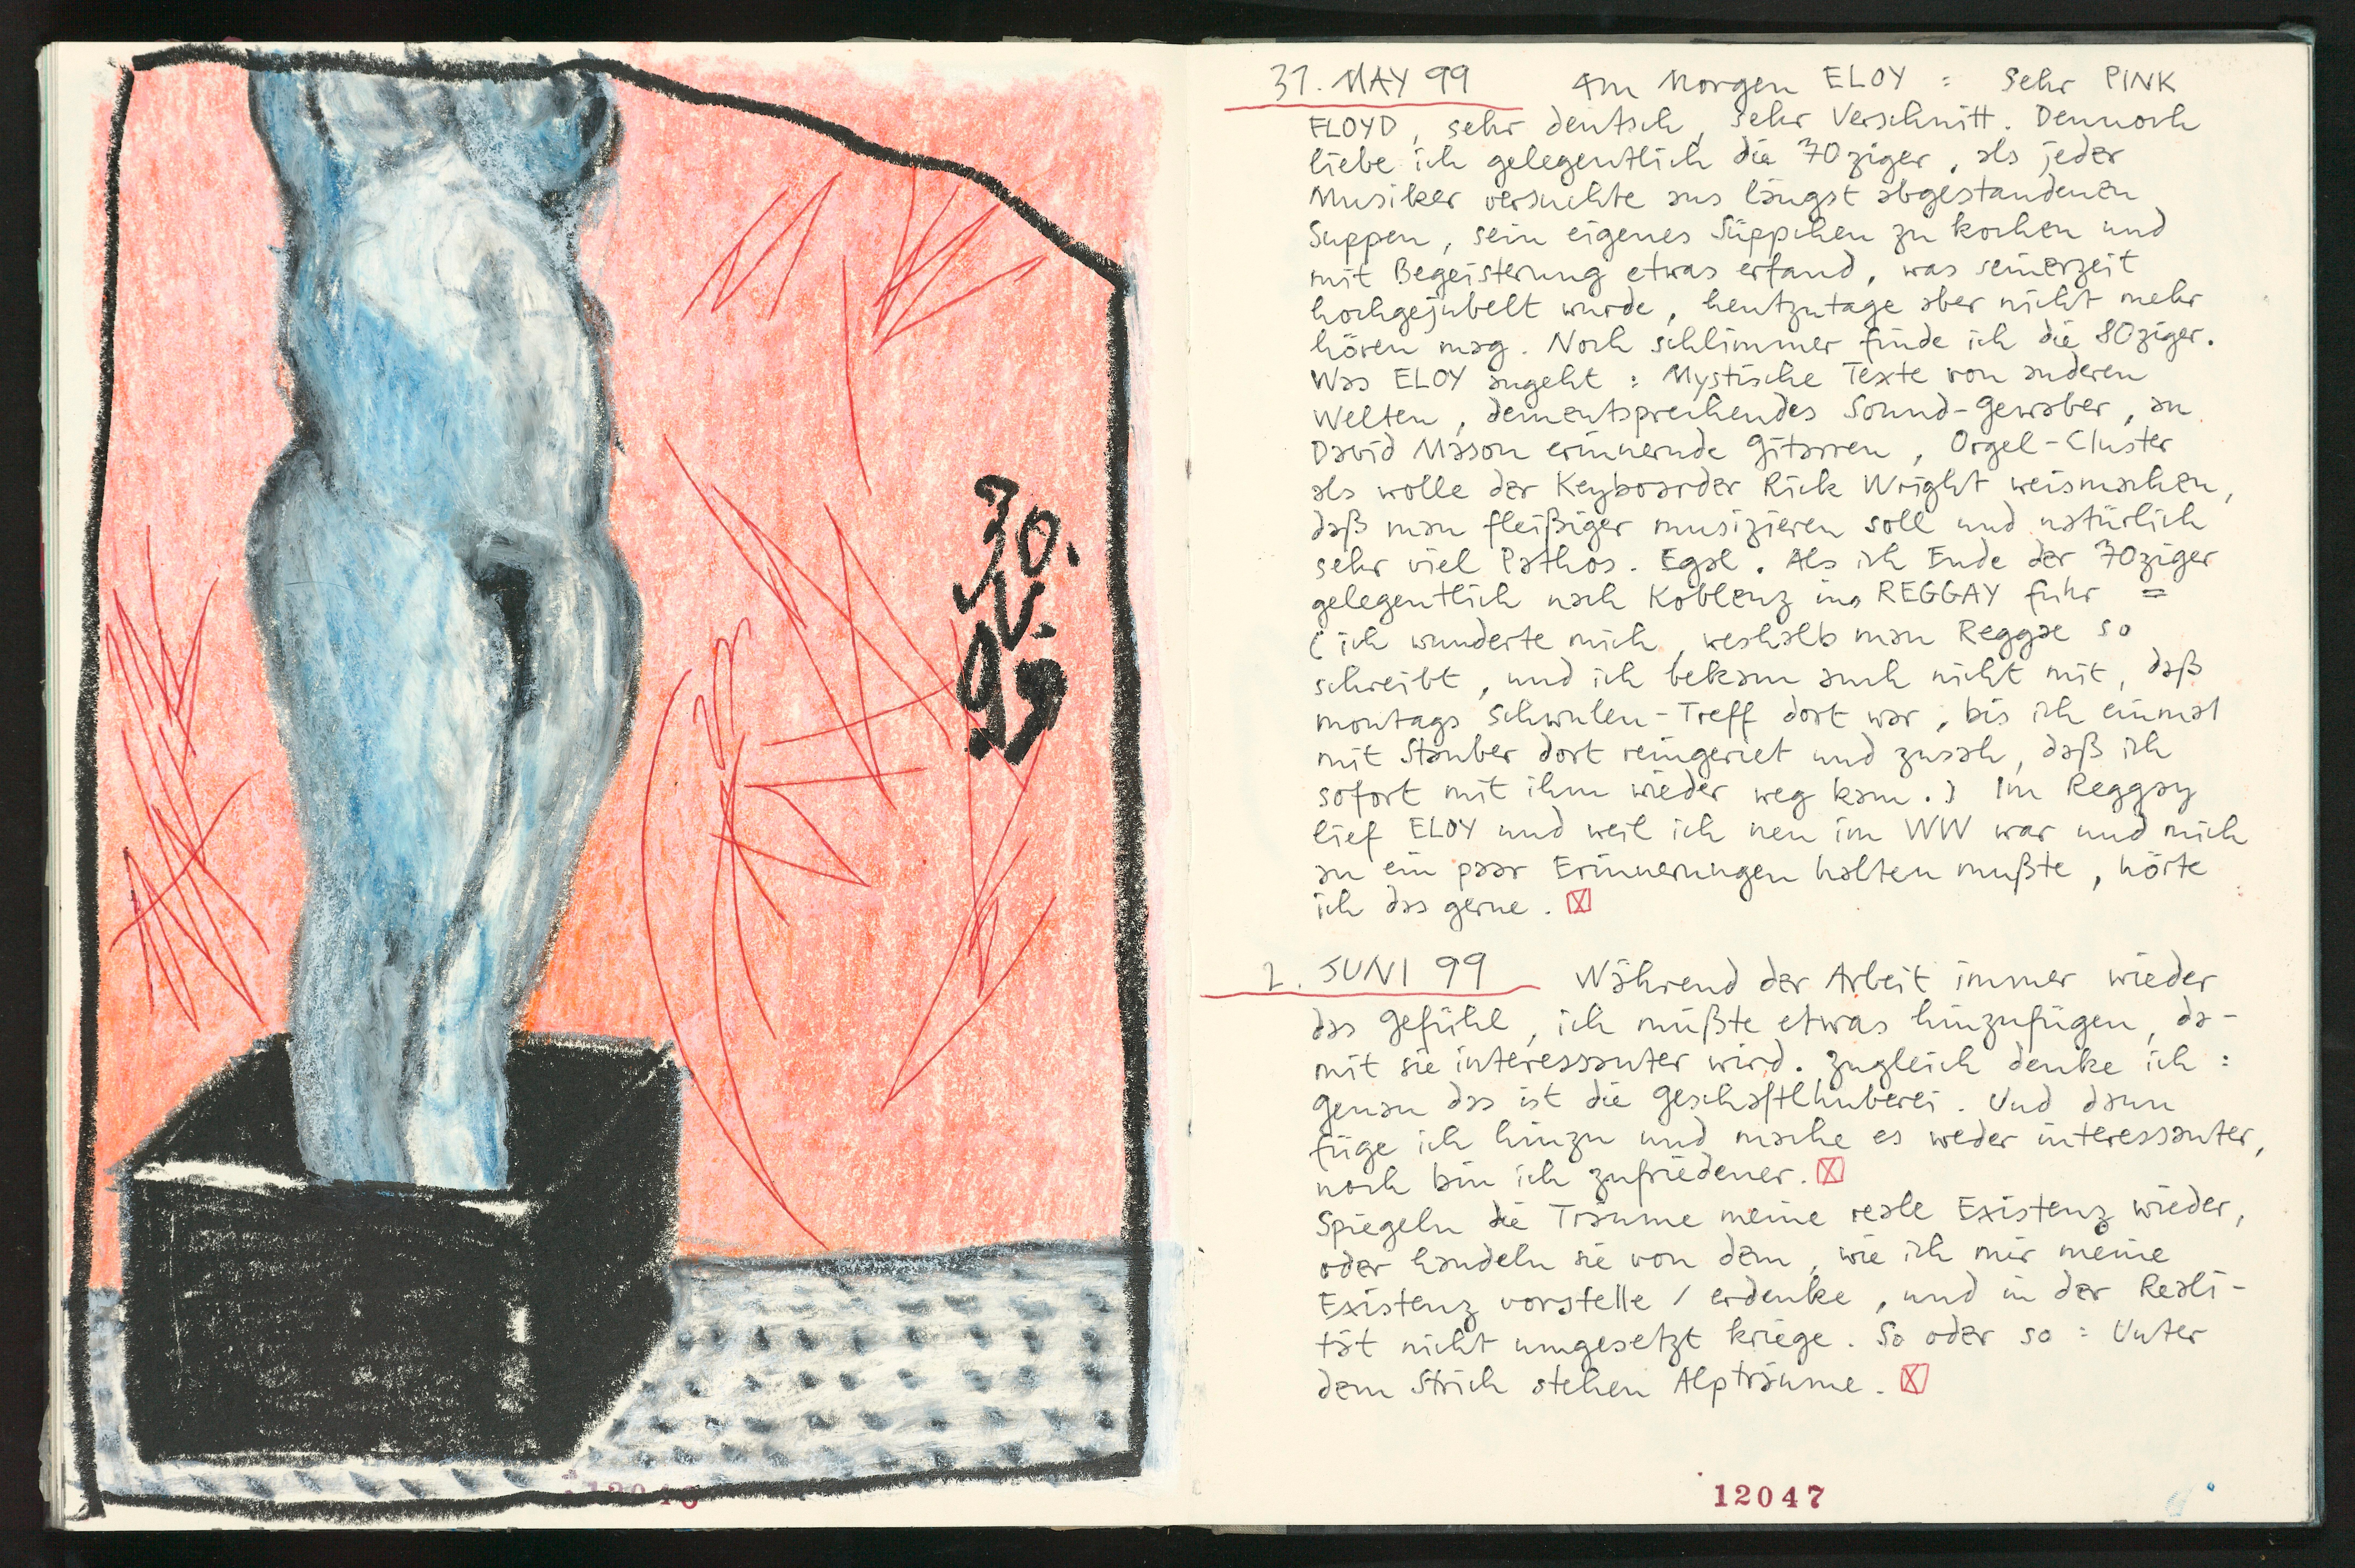 30.
V.
99
31. MAY 99 Am Morgen ELOY : Sehr PINK
FLOYD, sehr deutsch, sehr Verschnitt. Dennoch
liebe ich gelegentlich die 70ziger, als jeder
Musiker versuchte aus längst abgestandenen
Suppen, sein eigenes Süppchen zu kochen und
mit Begeisterung etwas erfand, was seinerzeit
hochgejubelt wurde, heutzutage aber nicht mehr
hören mag. Noch schlimmer finde ich die 80ziger.
Was ELOY angeht : Mystische Texte von anderen
Welten, dementsprechendes Sound-Gewaber, an
David Mason erinnernde Gitarren, Orgel-Cluster
als wolle der Keyboarder Rick Wright weismachen,
daß man fleißiger musizieren soll und natürlich
sehr viel Pathos. Egal. Als ich Ende der 70ziger
gelegentlich nach Koblenz ins REGGAY fuhr =
(ich wunderte mich, weshalb man Reggae so
schreibt, und ich bekam auch nicht mit, daß
montags Schwulen-Treff dort war, bis ich einmal
mit Stauber dort reingeriet und zusah, daß ich
sofort mit ihm wieder weg kam.) Im Reggay
lief ELOY und weil ich neu im WW war und mich
an ein paar Erinnerungen halten mußte, hörte
ich das gerne.
2. JUNI 99 Während der Arbeit immer wieder
das Gefühl, ich müßte etwas hinzufügen, da-
mit sie interessanter wird. Zugleich denke ich :
Genau das ist die Geschaftlhuberei. Und dann
füge ich hinzu und mache es weder interessanter,
noch bin ich zufriedener.
Spiegeln die Träume meine reale Existenz wieder,
oder handeln sie von dem, wie ich mir meine
Existenz vorstelle / erdenke, und in der Reali-
tät nicht umgesetzt kriege. So oder so : Unter
dem Strich stehen Alpträume.
12047